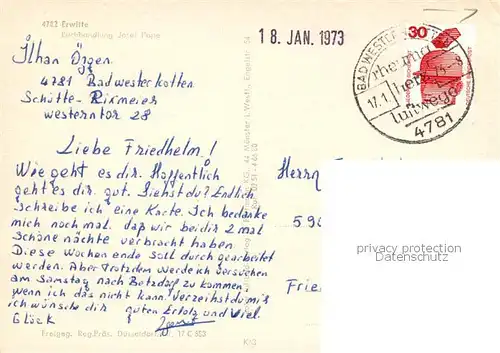 4782 Erwitte
Buchhandlung Josef
18. JAN. 1973
30
BAD WESTER
17.1.
4781
rheuma
herz
luftwege
Ilhan Özgen
4781 Badwesterkotten
Schütte-Rixmeier
westerntor 28
Liebe Friedhelm!
Wie geht es dir. Hoffentlich
geht es dir gut. Siehst du? Endlich
schreibe ich eine Karte. Ich bedanke
mich noch mal. daß wir beidir 2 mal
schöne nächte verbracht haben.
Diese Wochen ende soll durch gearbeitet
werden. Aber Trotzdem werde ich versuchen
am Samstag nach Betzdorf zu kommen,
wenn ich das nicht kann. Verzeihst du mir
ich wünsche dir guten Erfolg und viel
Glück
Herrn
590
Frie
privacy protection
Datenschutz
44 Münster i. Westf., Engelstr. 54
Freigeg. Reg.Präs. Düsseldorf 17 C 353